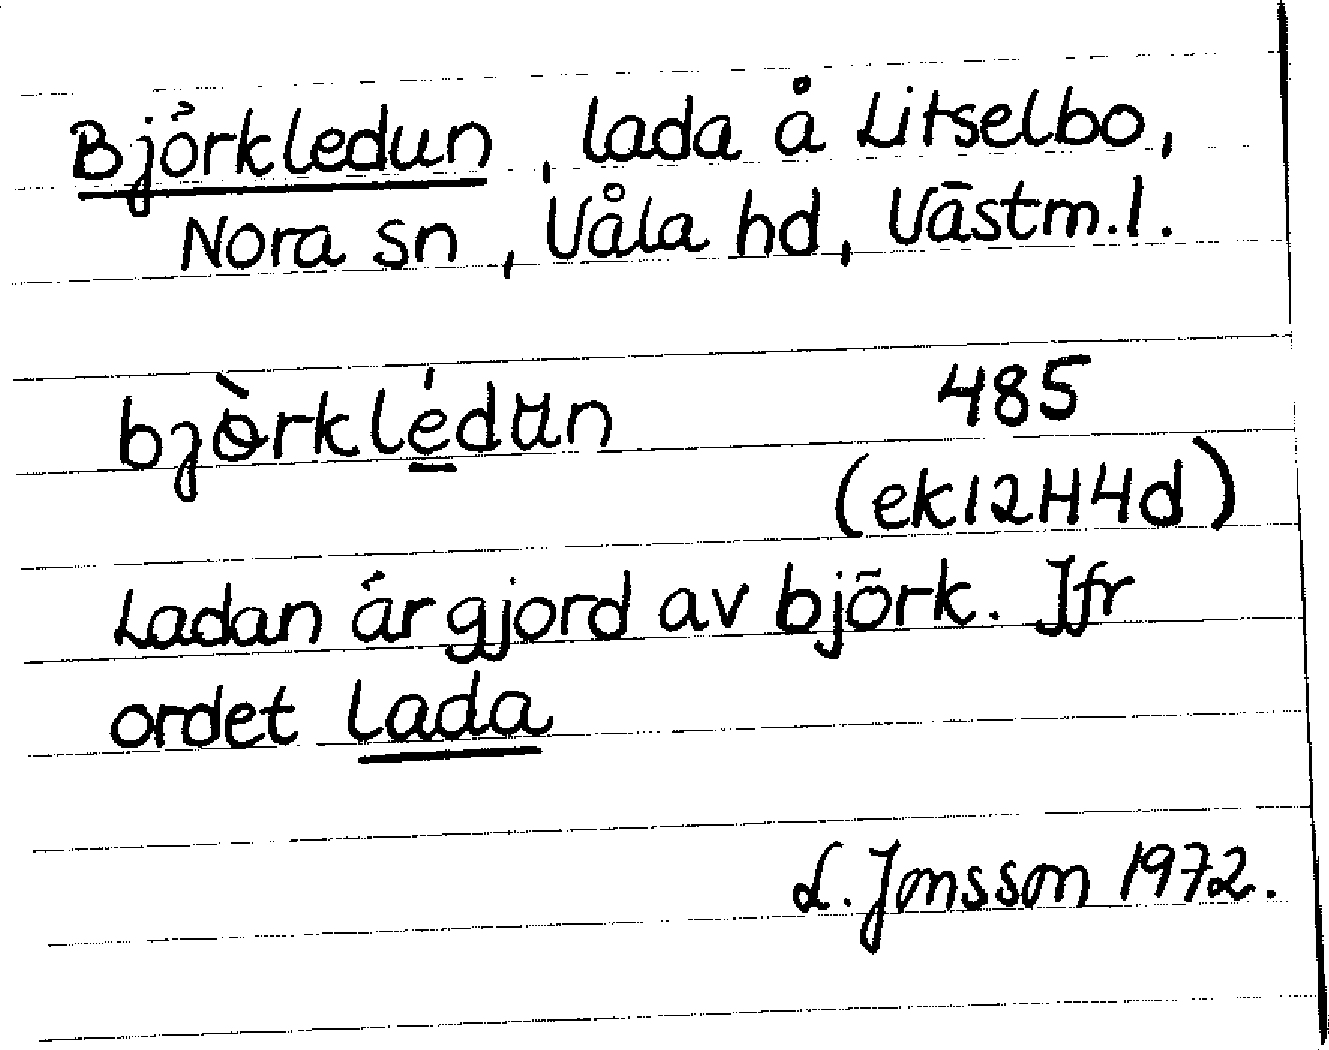 Björkledun, lada å Litselbo,
Nora sn, Våla hd, Västm.l.
bjɵ̀rklé̲dʉn 485
(ek12H4d)
Ladan är gjord av björk. Jfr
ordet lada
L. Jonsson 1972.